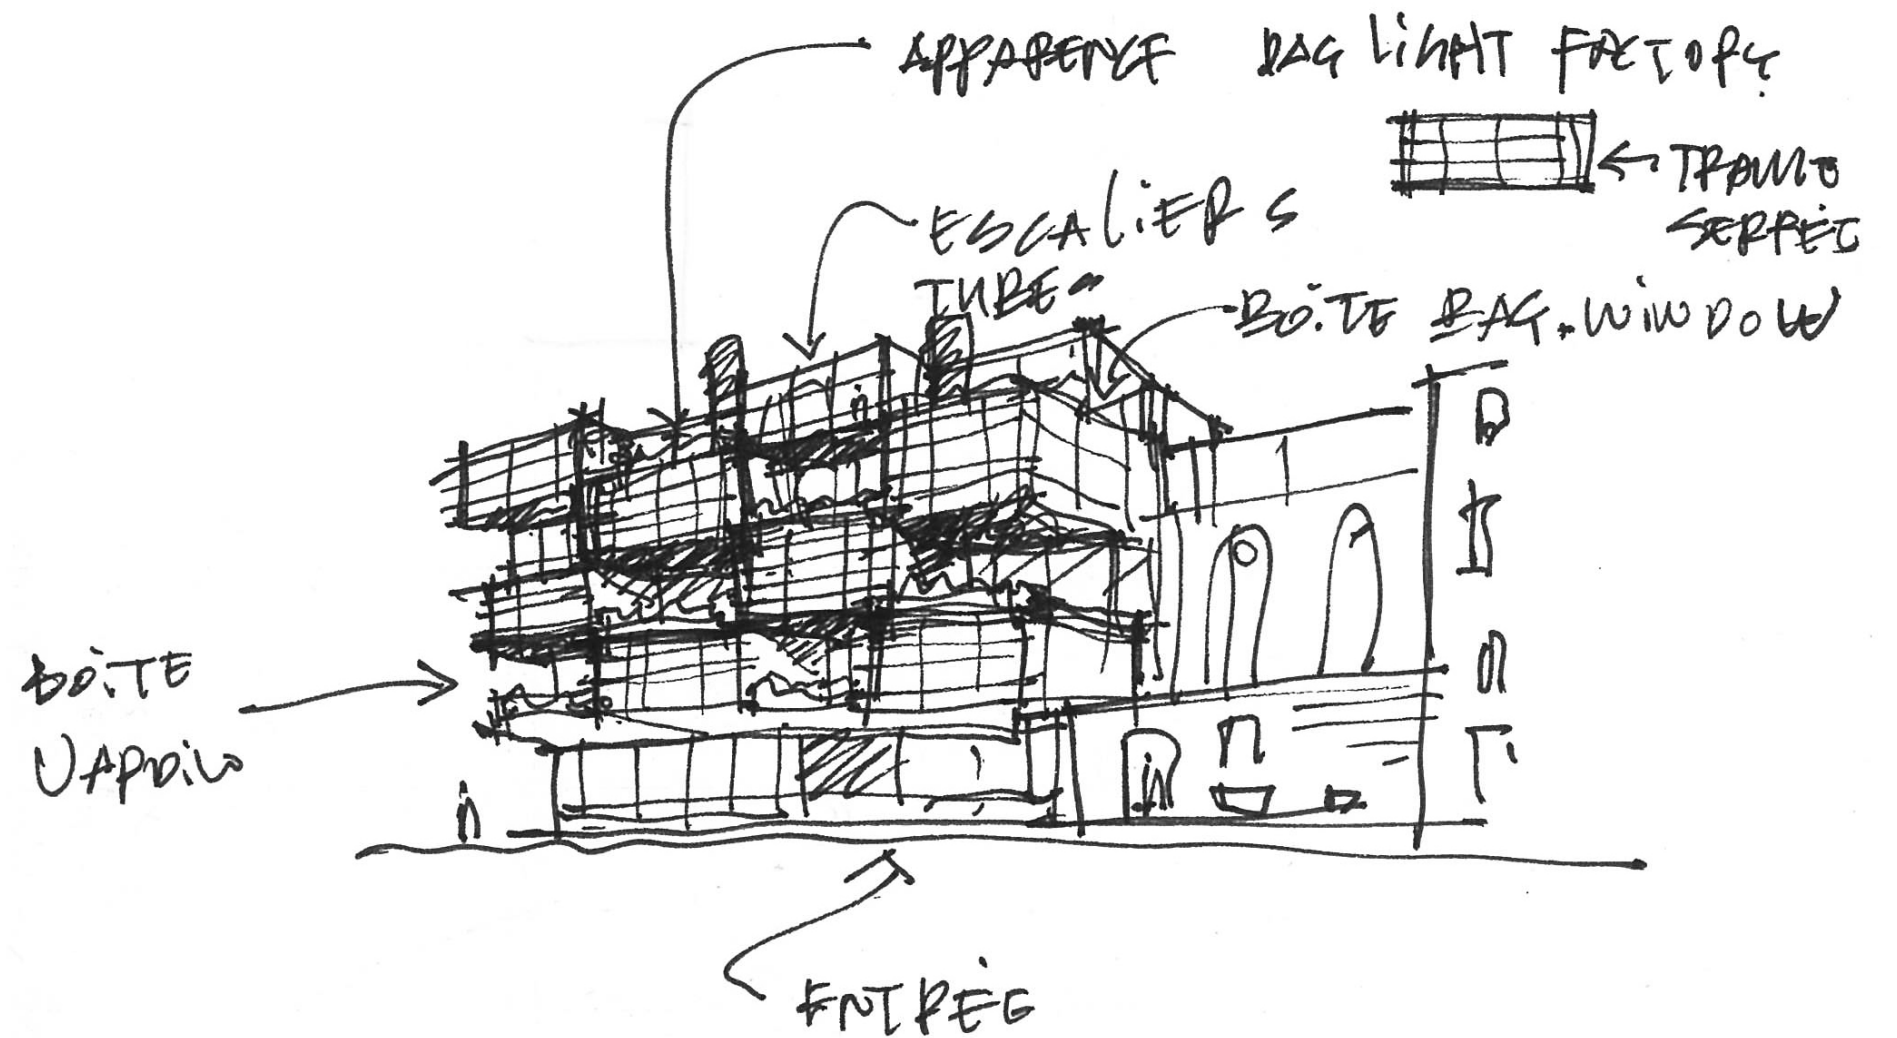 APPARENCE DAY LIGHT FACTORY
TRAME
SERRÉE
ESCALIERS
TUBE
BOITE BAY.WINDOW
BOITE
JARDIN
ENTRÉE